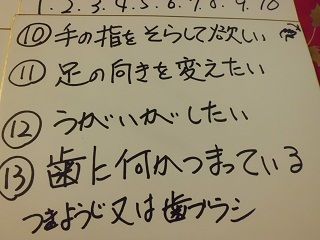 1.2.3.4.5.6.7.8.9.10
⑩手の指をそらして欲しい
⑪足の向きを変えたい
⑫うがいがしたい
⑬歯に何かつまっている
つまようじ又は歯ブラシ